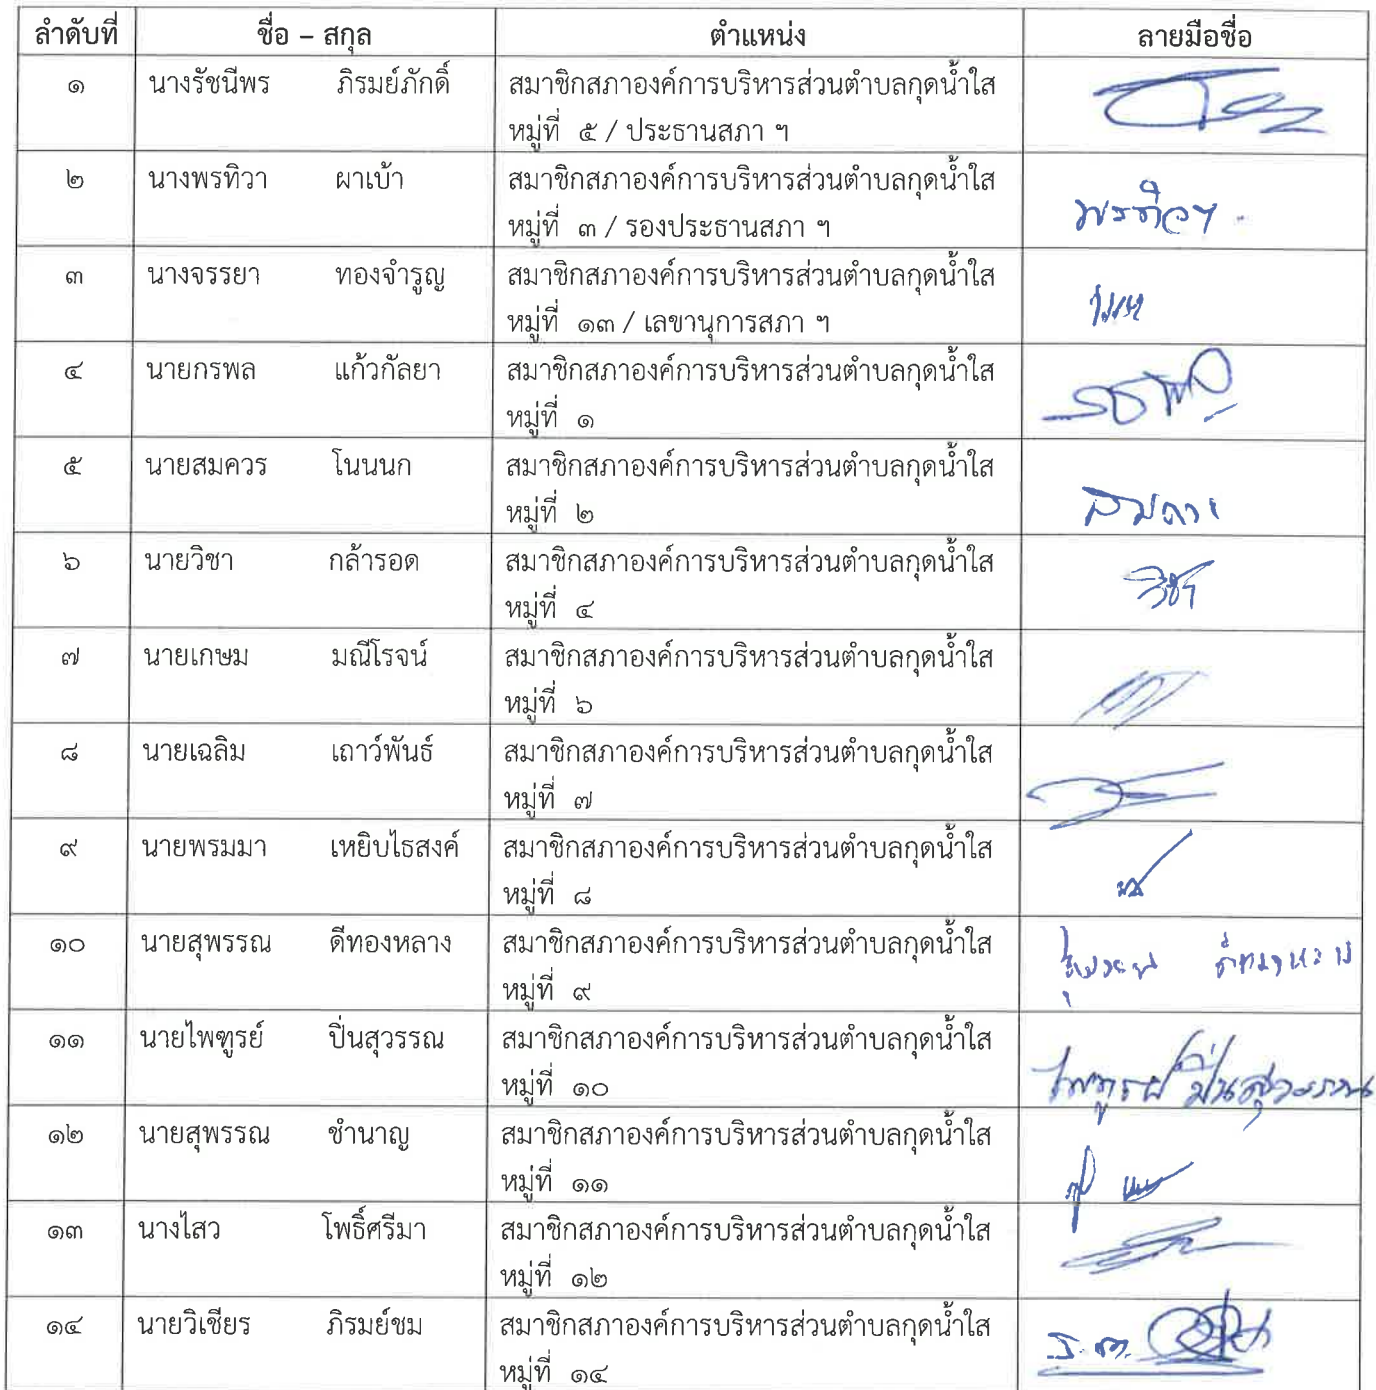 ลำดับที่ ชื่อ – สกุล ตำแหน่ง ลายมือชื่อ
๑ นางรัชนีพร ภิรมย์ภักดิ์ สมาชิกสภาองค์การบริหารส่วนตำบลกุดน้ำใส
หมู่ที่ ๕ / ประธานสภา ฯ
๒ นางพรทิวา ผาเบ้า สมาชิกสภาองค์การบริหารส่วนตำบลกุดน้ำใส
หมู่ที่ ๓ / รองประธานสภา ฯ
พรทิวา
๓ นางจรรยา ทองจำรูญ สมาชิกสภาองค์การบริหารส่วนตำบลกุดน้ำใส
หมู่ที่ ๑๓ / เลขานุการสภา ฯ
๔ นายกรพล แก้วกัลยา สมาชิกสภาองค์การบริหารส่วนตำบลกุดน้ำใส
หมู่ที่ ๑
๕ นายสมควร โนนนก สมาชิกสภาองค์การบริหารส่วนตำบลกุดน้ำใส
หมู่ที่ ๒
สมควร
๖ นายวิชา กล้ารอด สมาชิกสภาองค์การบริหารส่วนตำบลกุดน้ำใส
หมู่ที่ ๔
วิชา
๗ นายเกษม มณีโรจน์ สมาชิกสภาองค์การบริหารส่วนตำบลกุดน้ำใส
หมู่ที่ ๖
๘ นายเฉลิม เถาว์พันธ์ สมาชิกสภาองค์การบริหารส่วนตำบลกุดน้ำใส
หมู่ที่ ๗
๙ นายพรมมา เหยิบไธสงค์ สมาชิกสภาองค์การบริหารส่วนตำบลกุดน้ำใส
หมู่ที่ ๘
๑๐ นายสุพรรณ ดีทองหลาง สมาชิกสภาองค์การบริหารส่วนตำบลกุดน้ำใส
หมู่ที่ ๙
สุพรรณ ดีทองหลาง
๑๑ นายไพฑูรย์ ปิ่นสุวรรณ สมาชิกสภาองค์การบริหารส่วนตำบลกุดน้ำใส
หมู่ที่ ๑๐
ไพฑูรย์ ปิ่นสุวรรณ
๑๒ นายสุพรรณ ชำนาญ สมาชิกสภาองค์การบริหารส่วนตำบลกุดน้ำใส
หมู่ที่ ๑๑
๑๓ นางไสว โพธิ์ศรีมา สมาชิกสภาองค์การบริหารส่วนตำบลกุดน้ำใส
หมู่ที่ ๑๒
๑๔ นายวิเชียร ภิรมย์ชม สมาชิกสภาองค์การบริหารส่วนตำบลกุดน้ำใส
หมู่ที่ ๑๔